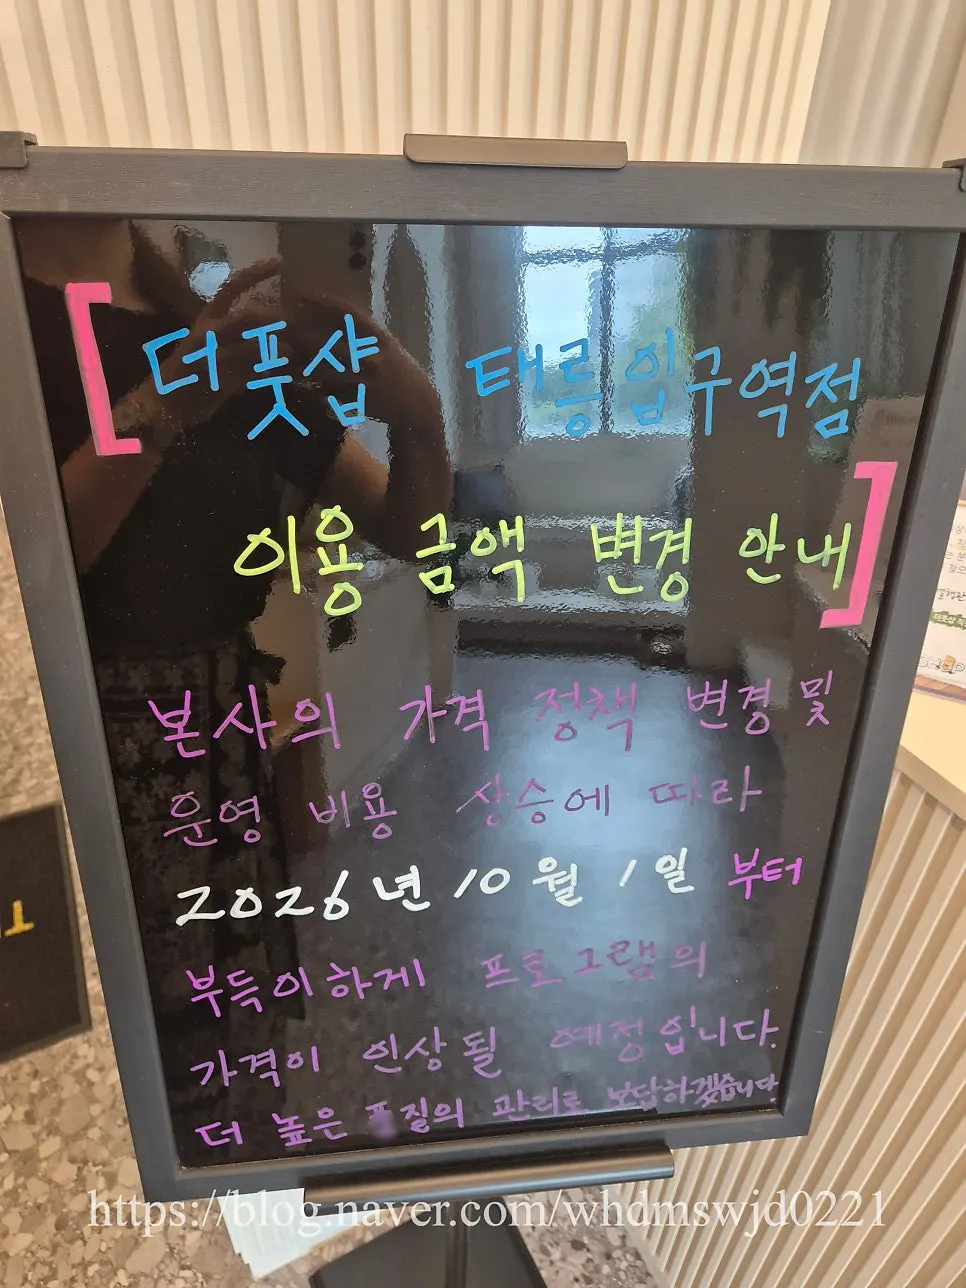 [더풋샵 태릉입구역점
이용 금액 변경 안내]
본사의 가격 정책 변경 및
운영 비용 상승에 따라
2026년 10월 1일 부터
부득이하게 프로그램의
가격이 인상될 예정입니다.
더 높은 품질의 관리로 보답하겠습니다.
https://blog.naver.com/whdmswjd0221